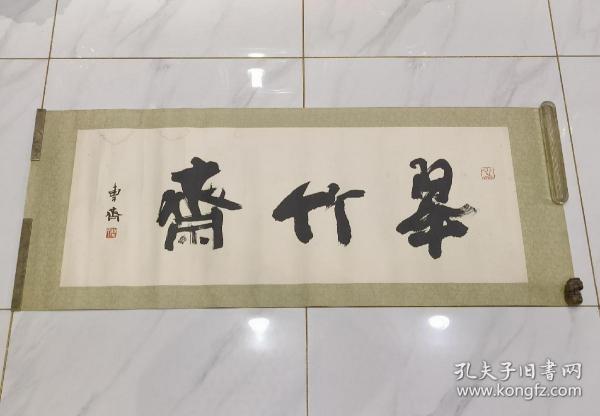 翠竹齋
曹齊
孔夫子旧书网
www.kongfz.com